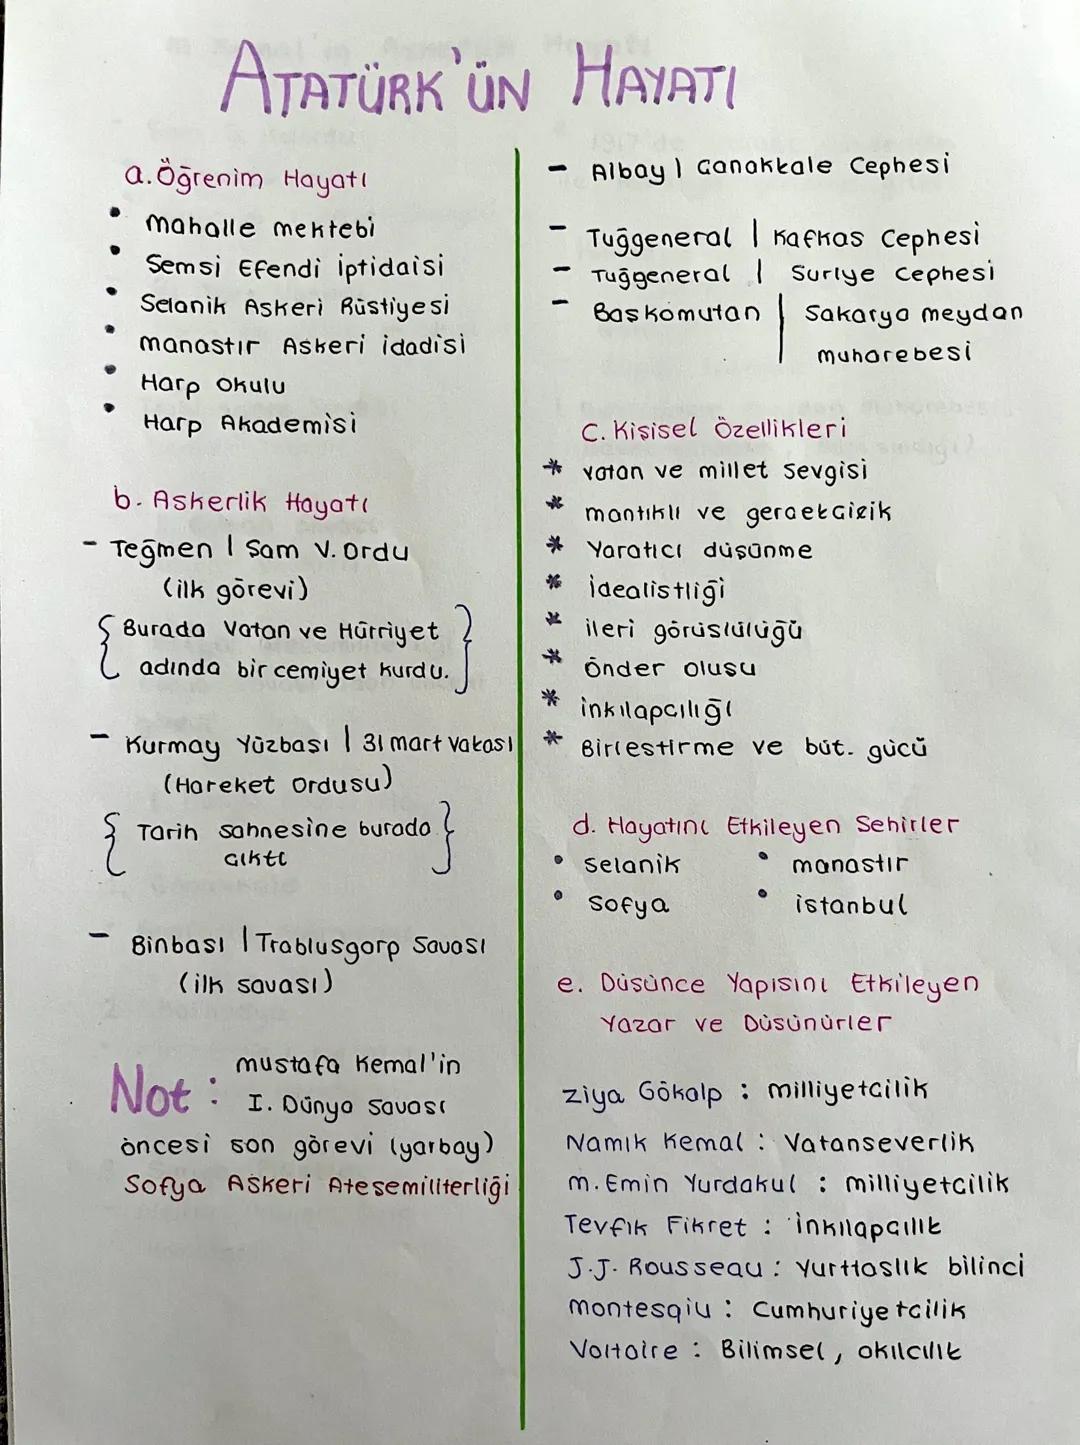 ATATÜRK'ÜN HAYATI
a. Öğrenim Hayatı
• Mahalle mektebi
• Semsi Efendi İptidaisi
• Selanik Askeri Rüstiyesi
• manastır Askeri idadisi
• Harp Okulu
• Harp Akademisi
b. Askerlik Hayatı
- Teğmen | Sam V. Ordu
(ilk görevi)
{ Burada Vatan ve Hürriyet }
adında bir cemiyet kurdu.
- Kurmay Yüzbası | 31 mart vakası
(Hareket Ordusu)
{ Tarih sahnesine burada }
cıktı
- Binbası | Trablusgarp Savası
(ilk savası)
Not: mustafa Kemal'in
I. Dünya Savası
öncesi son görevi (yarbay)
Sofya Askeri Atesemiliterliği
- Albay | Canakkale Cephesi
- Tuğgeneral | Kafkas Cephesi
- Tuğgeneral | Suriye Cephesi
- Baskomutan | Sakarya meydan
muharebesi
C. Kisisel Özellikleri
* vatan ve millet sevgisi
* mantıklı ve
* Yaratıcı düşünme
* İdealistliği
* ileri görüslülüğü
* Önder olusu
* inkılapcılığı
* Birlestirme ve büt. gücü
d. Hayatını Etkileyen Sehirler
• selanik • manastır
• Sofya • istanbul
e. Düsünce Yapısını Etkileyen
Yazar ve Düsünürler
ziya Gökalp : milliyetcilik
Namık Kemal : Vatanseverlik
m. Emin Yurdakul : milliyetcilik
Tevfik Fikret : inkılapcılık
J.J. Rousseau : Yurttaslık bilinci
montesqiu : Cumhuriyetcilik
Voltaire : Bilimsel, akılcılık